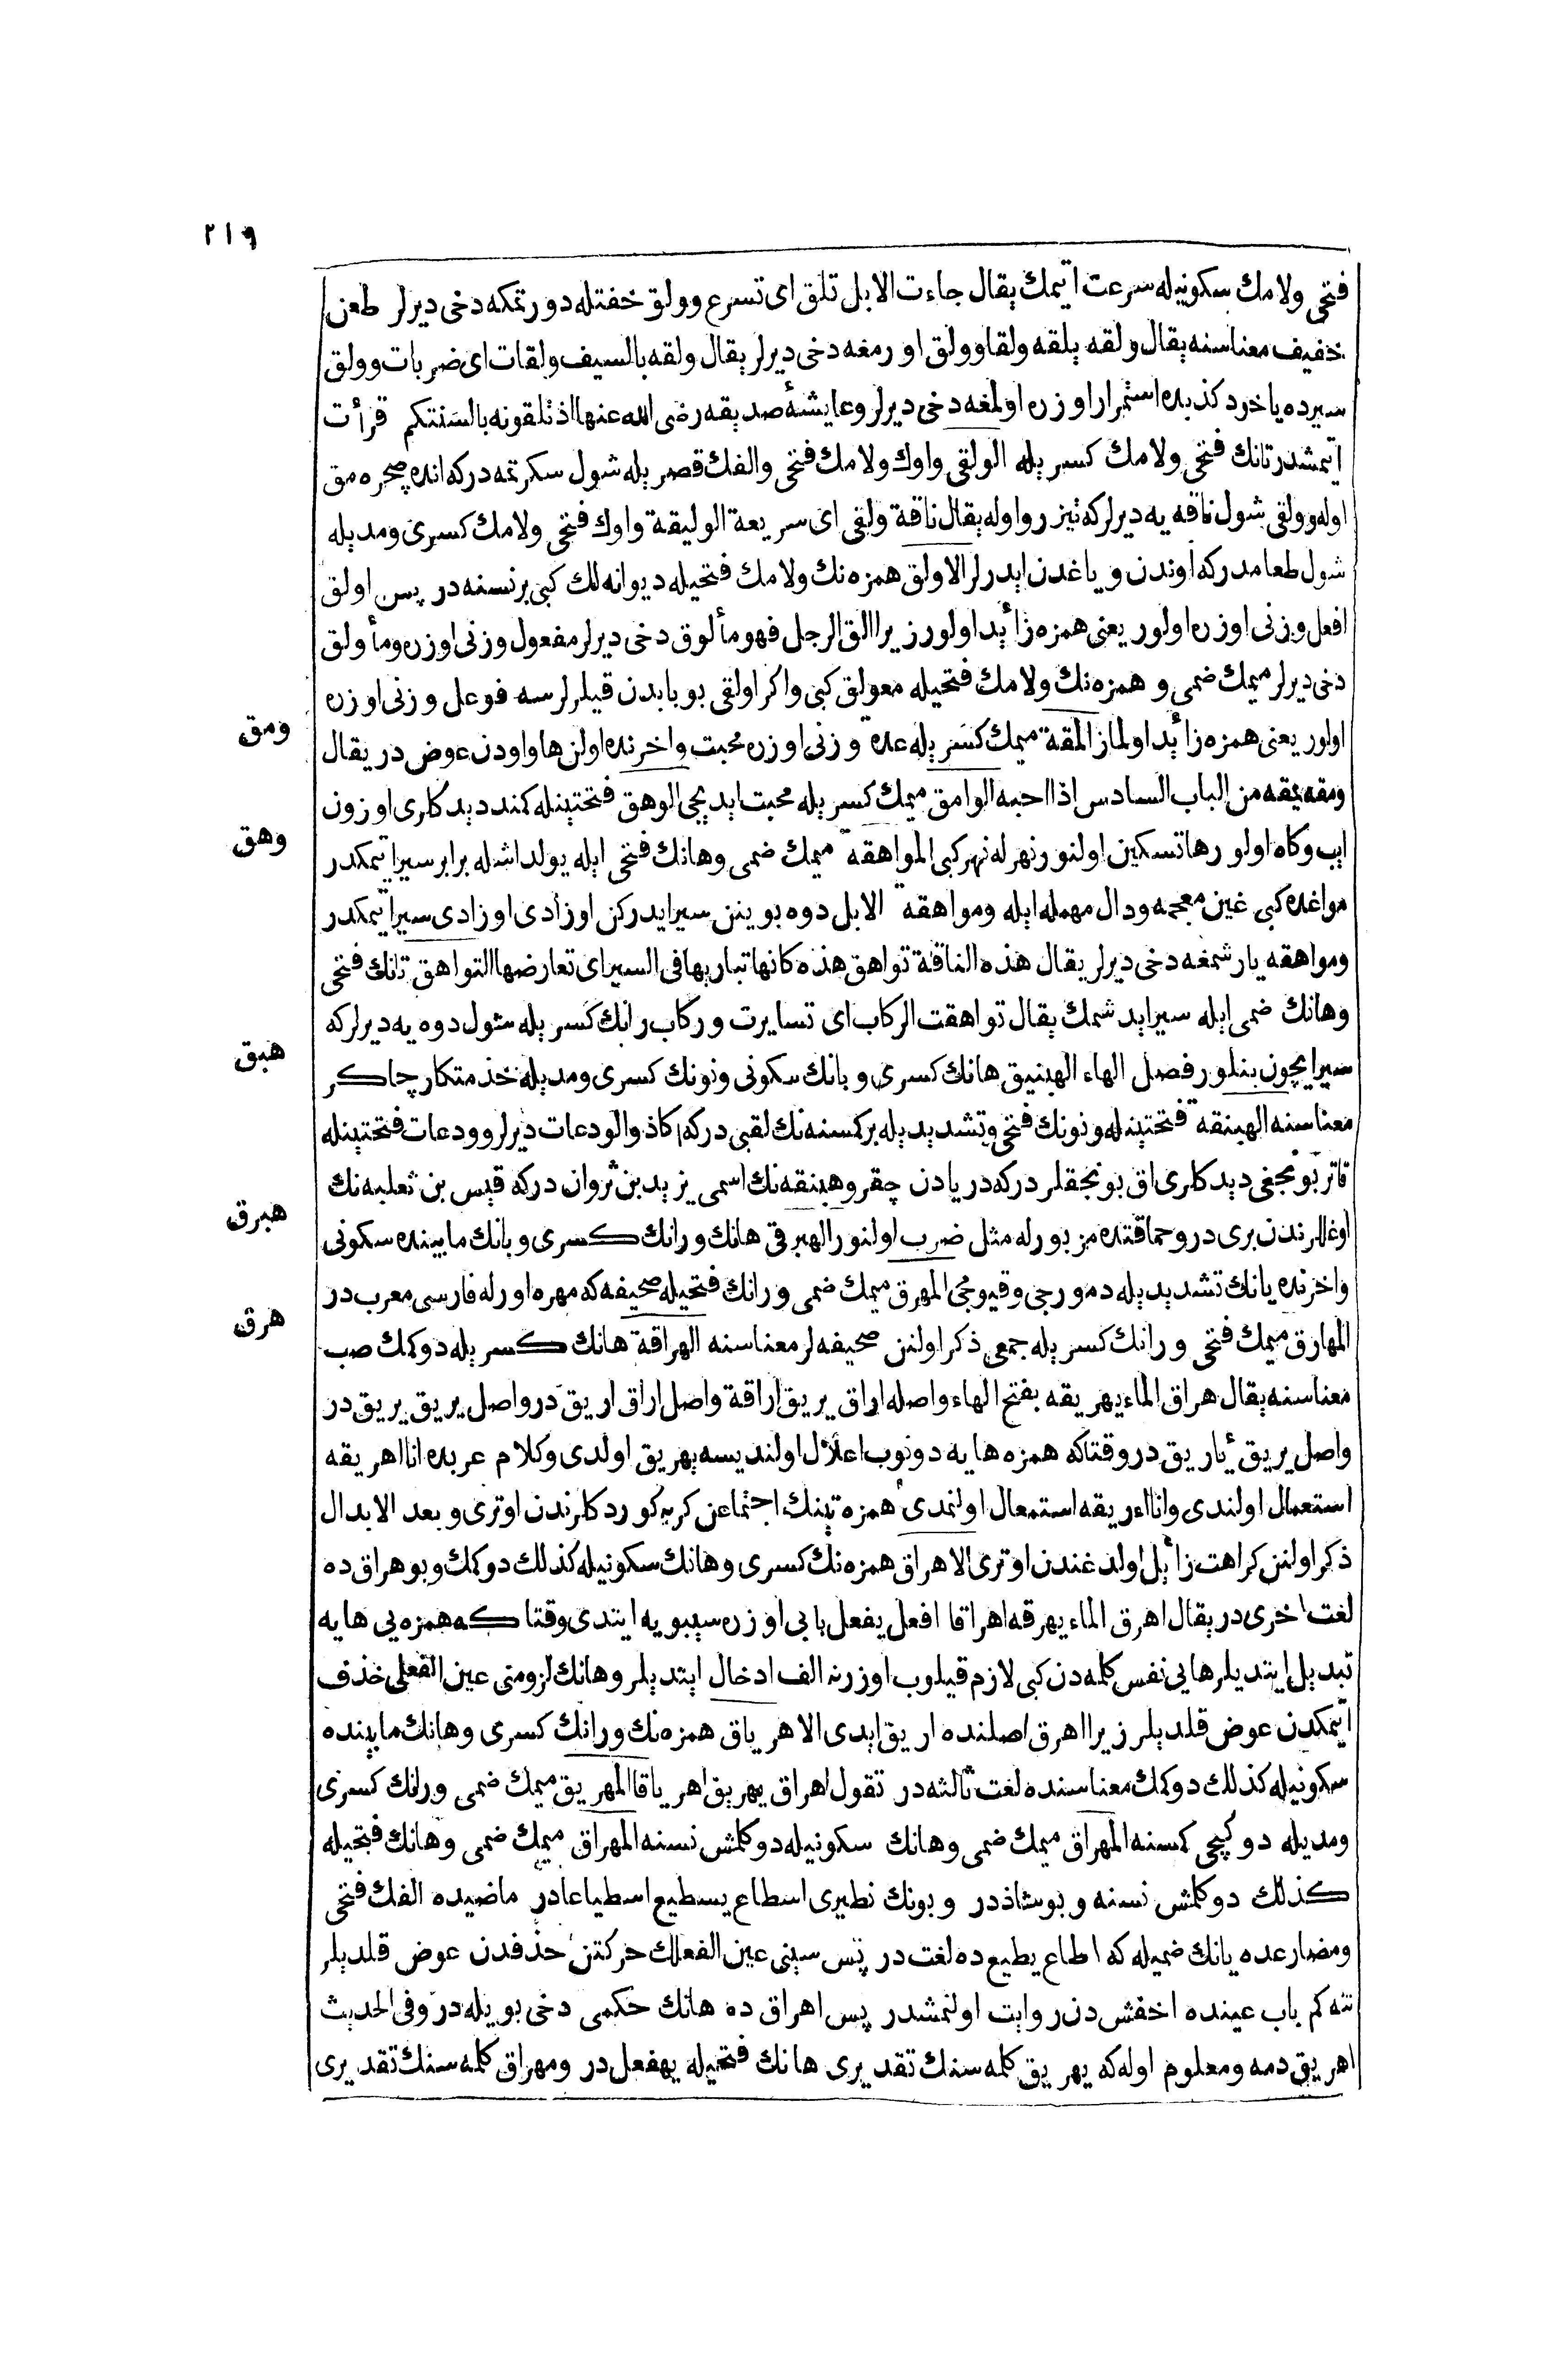 ٢١٩
فتحى ولامك سكونيله سرعت اتيمك يقال جاءت الابل تلق اى تسرع وولق خفتله دورتمكه دخى ديرلر طعن
خفيف معناسنه يقال ولقه يلقه ولقا وولق اورمغه دخى ديرلر يقال ولقه بالسيف ولقات اى ضربات وولق
سيرده ياخود كذبده استمرار اوزره اولمغه دخى ديرلر وعايشهٔ صديقه رضى الله عنها اذ تلقونه بالسنتكم قرأت
اتمشدر تانك فتحى ولامك كسريله الولقى واوك ولامك فتحى والفك قصريله شول سكرتمه دركه انده صچره مق
اوله وولقى شول ناقه يه ديرلر كه تيز رو اوله يقال ناقة ولقى اى سريعة الوليقة واوك فتحى ولامك كسرى ومديله
شول طعامدركه اوندن وياغدن ايدرلر الاولق همزه نك ولامك فتحيله ديوانه لك كبى برنسنه در پس اولق
افعل وزنى اوزره اولور يعنى همزه زائد اولور زيرا الق الرجل فهو مألوق دخى ديرلر مفعول وزنى اوزره ومأولق
دخى ديرلر ميمك ضمى وهمزه نك ولامك فتحيله معولق كبى واكر اولقى بو بابدن قيلرلرسه فوعل وزنى اوزره
اولور يعنى همزه زائد اولماز المقة ميمك كسريله عدة وزنى اوزره محبت واخرنده اولن ها واودن عوض در يقال
ومقه يمقه من الباب السادس اذا احبه الوامق ميمك كسريله محبت ايديجى الوهق فتحتينله كمند ديدكلرى اوزون
ايپ وكاه اولور ها تسكين اولنور نهر له نهر كبى المواهقة ميمك ضمى وهانك فتحى ايله يولداشله برابر سير اتيمكدر
مواغده كبى غين معجمه ودال مهمله ايله ومواهقة الابل دوه بوينن سير ايدركن اوزادى اوزادى سير اتيمكدر
ومواهقه يارشمغه دخى ديرلر يقال هذه الناقة تواهق هذه كانها تباريها فى السير اى تعارضها التواهق تانك فتحى
وهانك ضمى ايله سير ايدشمك يقال تواهقت الركاب اى تسايرت وركاب رانك كسريله شول دوه يه ديرلر كه
سير ايچون بنلور فصل الهاء الهبنيق هانك كسرى وبانك سكونى ونونك كسرى ومديله خذمتكار چاكر
معناسنه الهبنقة فتحتينله ونونك فتحى وتشديديله بر كمسنه نك لقبى در كه اكا ذو الودعات ديرلر وودعات فتحتينله
قاتر بونجغى ديدكلرى اق بونجقلر در كه دريادن چقر وهبنقه نك اسمى يزيد بن ثروان در كه قيس بن ثعلبه نك
اوغللرندن برى در وحماقتده مزبورله مثل ضرب اولنور الهبرقى هانك ورانك كسرى وبانك مابينده سكونى
واخرنده يانك تشديديله دمورجى وقيومجى المهرق ميمك ضمى ورانك فتحيله صحيفه كه مهره اورله فارسى معرب در
المهارق ميمك فتحى ورانك كسريله جمعى ذكر اولنن صحيفه لر معناسنه الهراقة هانك كسريله دوكمك صب
معناسنه يقال هراق الماء يهريقه بفتح الهاء واصله اراق يريق اراقة واصل اراق اريق در واصل يريق يريق در
واصل يريق يأريق در وقتاكه همزه هايه دونوب اعلال اولنديسه يهريق اولدى وكلام عربده انا اهريقه
استعمال اولندى وانا اءريقه استمعال اولنمدى همزه تينك اجتماعن كريه كوردكلرندن اوترى وبعد الابدال
ذكر اولنن كراهت زائل اولدغندن اوترى الاهراق همزه نك كسرى وهانك سكونيله كذلك دوكمك وبو هراق ده
لغت اخرى در يقال اهرق الماء يهرقه اهراقا افعل يفعل بابى اوزره سيبويه ايتدى وقتاكه همزه يى هايه
تبديل ايتديلر هايى نفس كلمه دن كبى لازم قيلوب اوزرنه الف ادخال ايتديلر وهانك لزومنى عين الفعلى خذف
اتيمكدن عوض قلديلر زيرا اهرق اصلنده اريق ايدى الاهرياق همزه نك ورانك كسرى وهانك مابينده
سكونيله كذلك دوكمك معناسنده لغت ثالثه در تقول اهراق يهريق اهرياقا المهريق ميمك ضمى ورانك كسرى
ومديله دوكيجى كمسنه المهراق ميمك ضمى وهانك سكونيله دوكلمش نسنه المهراق ميمك ضمى وهانك فتحيله
كذلك دوكلمش نسنه وبو شاذ در وبونك نظيرى اسطاع يسطيع اسطياعا در ماضيده الفك فتحى
ومضارعده يانك ضميله كه اطاع يطيع ده لغت در پس سينى عين الفعلك حركتن حذفدن عوض قلديلر
نته كم باب عينده اخفش دن روايت اولنمشدر پس اهراق ده هانك حكمى دخى بويله در وفى الحديث
اهريق دمه ومعلوم اوله كه يهريق كلمه سنك تقديرى هانك فتحيله يهفعل در ومهراق كلمه سنك تقديرى
ومق
وهق
هبق
هبرق
هرق